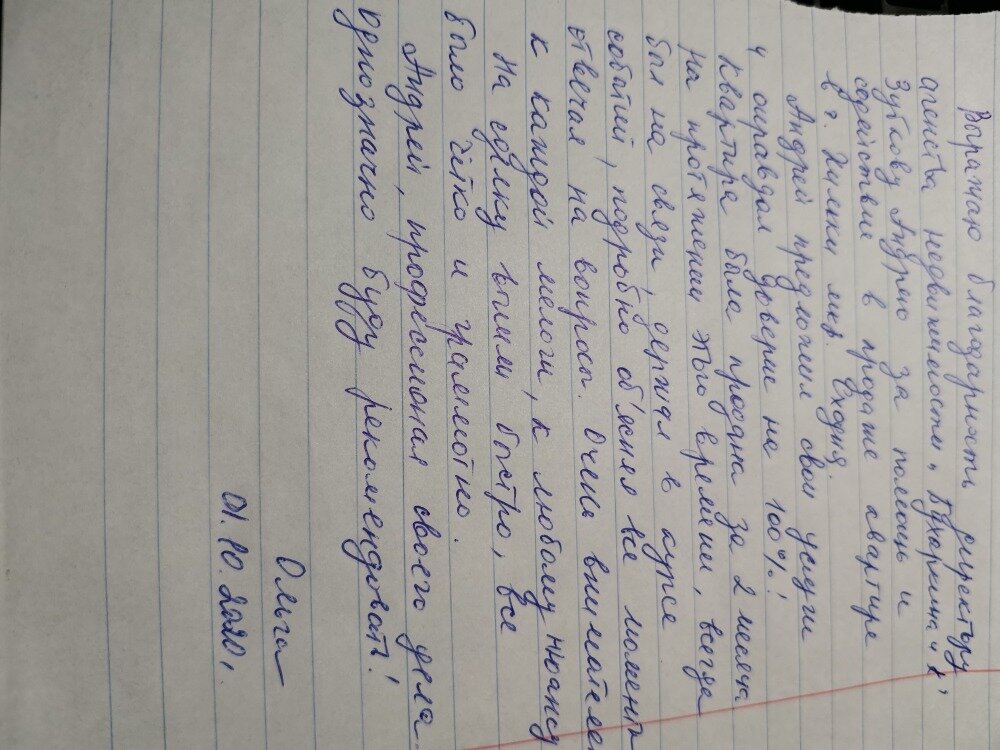 Выражаю благодарность директору
агенства недвижимости
Зубкову Андрею за помощь и
содействие в продаже квартире
в г. Химки мкр. Сходня.
Андрей предложил свои услуги
и оправдал доверие на 100%!
Квартира была продана за 2 месяца
На протяжении этого времени, всегда
был на связи, держал в курсе
событий, подробно объясняя все моменты
отвечая на вопросы. Очень внимателен
к каждой мелочи, к любому нюансу
На сделку вышли быстро, все
было чётко и грамотно.
Андрей, профессионал своего дела
Однозначно буду рекомендовать!
Ольга
01.10.2020г.